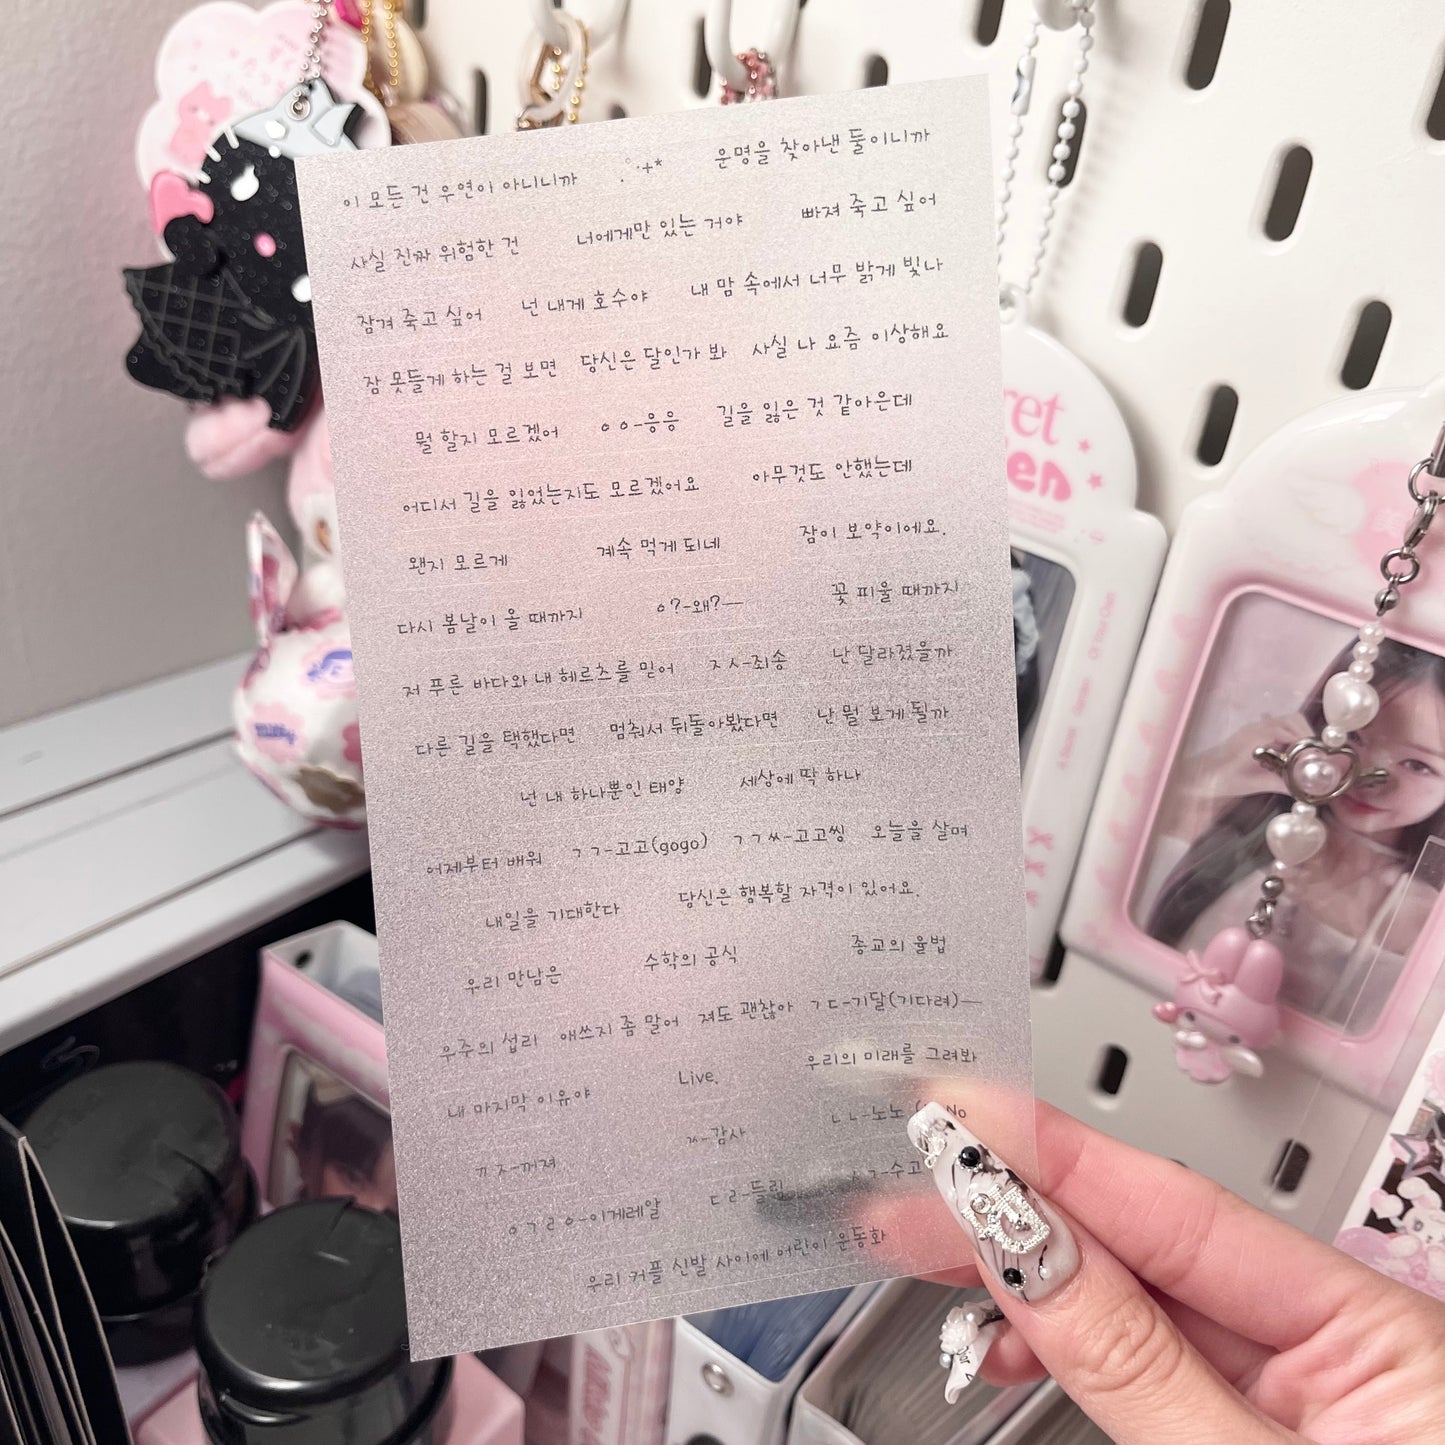 이 모든 건 우연이 아니니까 . ˚·+* 운명을 찾아낸 둘이니까
사실 진짜 위험한 건 너에게만 있는 거야 빠져 죽고 싶어
잠겨 죽고 싶어 넌 내게 호수야 내 맘 속에서 너무 밝게 빛나
잠 못들게 하는 걸 보면 당신은 달인가 봐 사실 나 요즘 이상해요
뭘 할지 모르겠어 ㅇㅇ-응응 길을 잃은 것 같아은데
어디서 길을 잃었는지도 모르겠어요 아무것도 안했는데
왠지 모르게 계속 먹게 되네 잠이 보약이에요.
다시 봄날이 올 때까지 ㅇ?-왜?— 꽃 피울 때까지
저 푸른 바다와 내 헤르츠를 믿어 ㅈㅅ-죄송 난 달라졌을까
다른 길을 택했다면 멈춰서 뒤돌아봤다면 난 뭘 보게 될까
넌 내 하나뿐인 태양 세상에 딱 하나
어제부터 배워 ㄱㄱ-고고(gogo) ㄱㄱㅆ-고고씽 오늘을 살며
내일을 기대한다 당신은 행복할 자격이 있어요.
우리 만남은 수학의 공식 종교의 율법
우주의 섭리 애쓰지 좀 말어 져도 괜찮아 ㄱㄷ-기달(기다려)—
내 마지막 이유야 Live. 우리의 미래를 그려봐
ㄲㅈ-꺼져 ㄳ-감사 ㄴㄴ-노노 No
ㅇㄱㄹㅇ-이게레알 ㄷㄹ-들림 ㅅㄱ-수고
우리 커플 신발 사이에 어린이 운동화